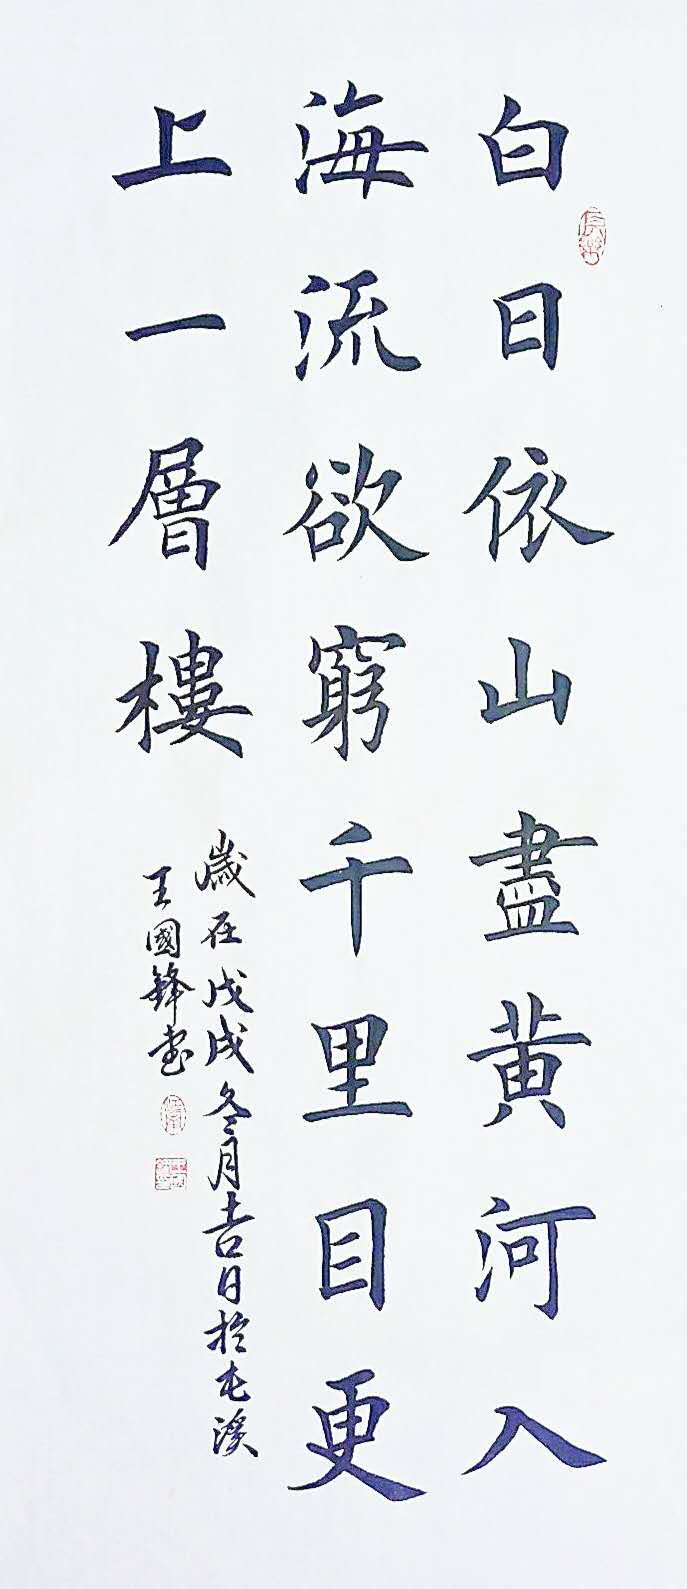 白日依山盡黃河入
海流欲窮千里目更
上一層樓
歲在戊戌冬月吉日於屯溪
王國鋒書